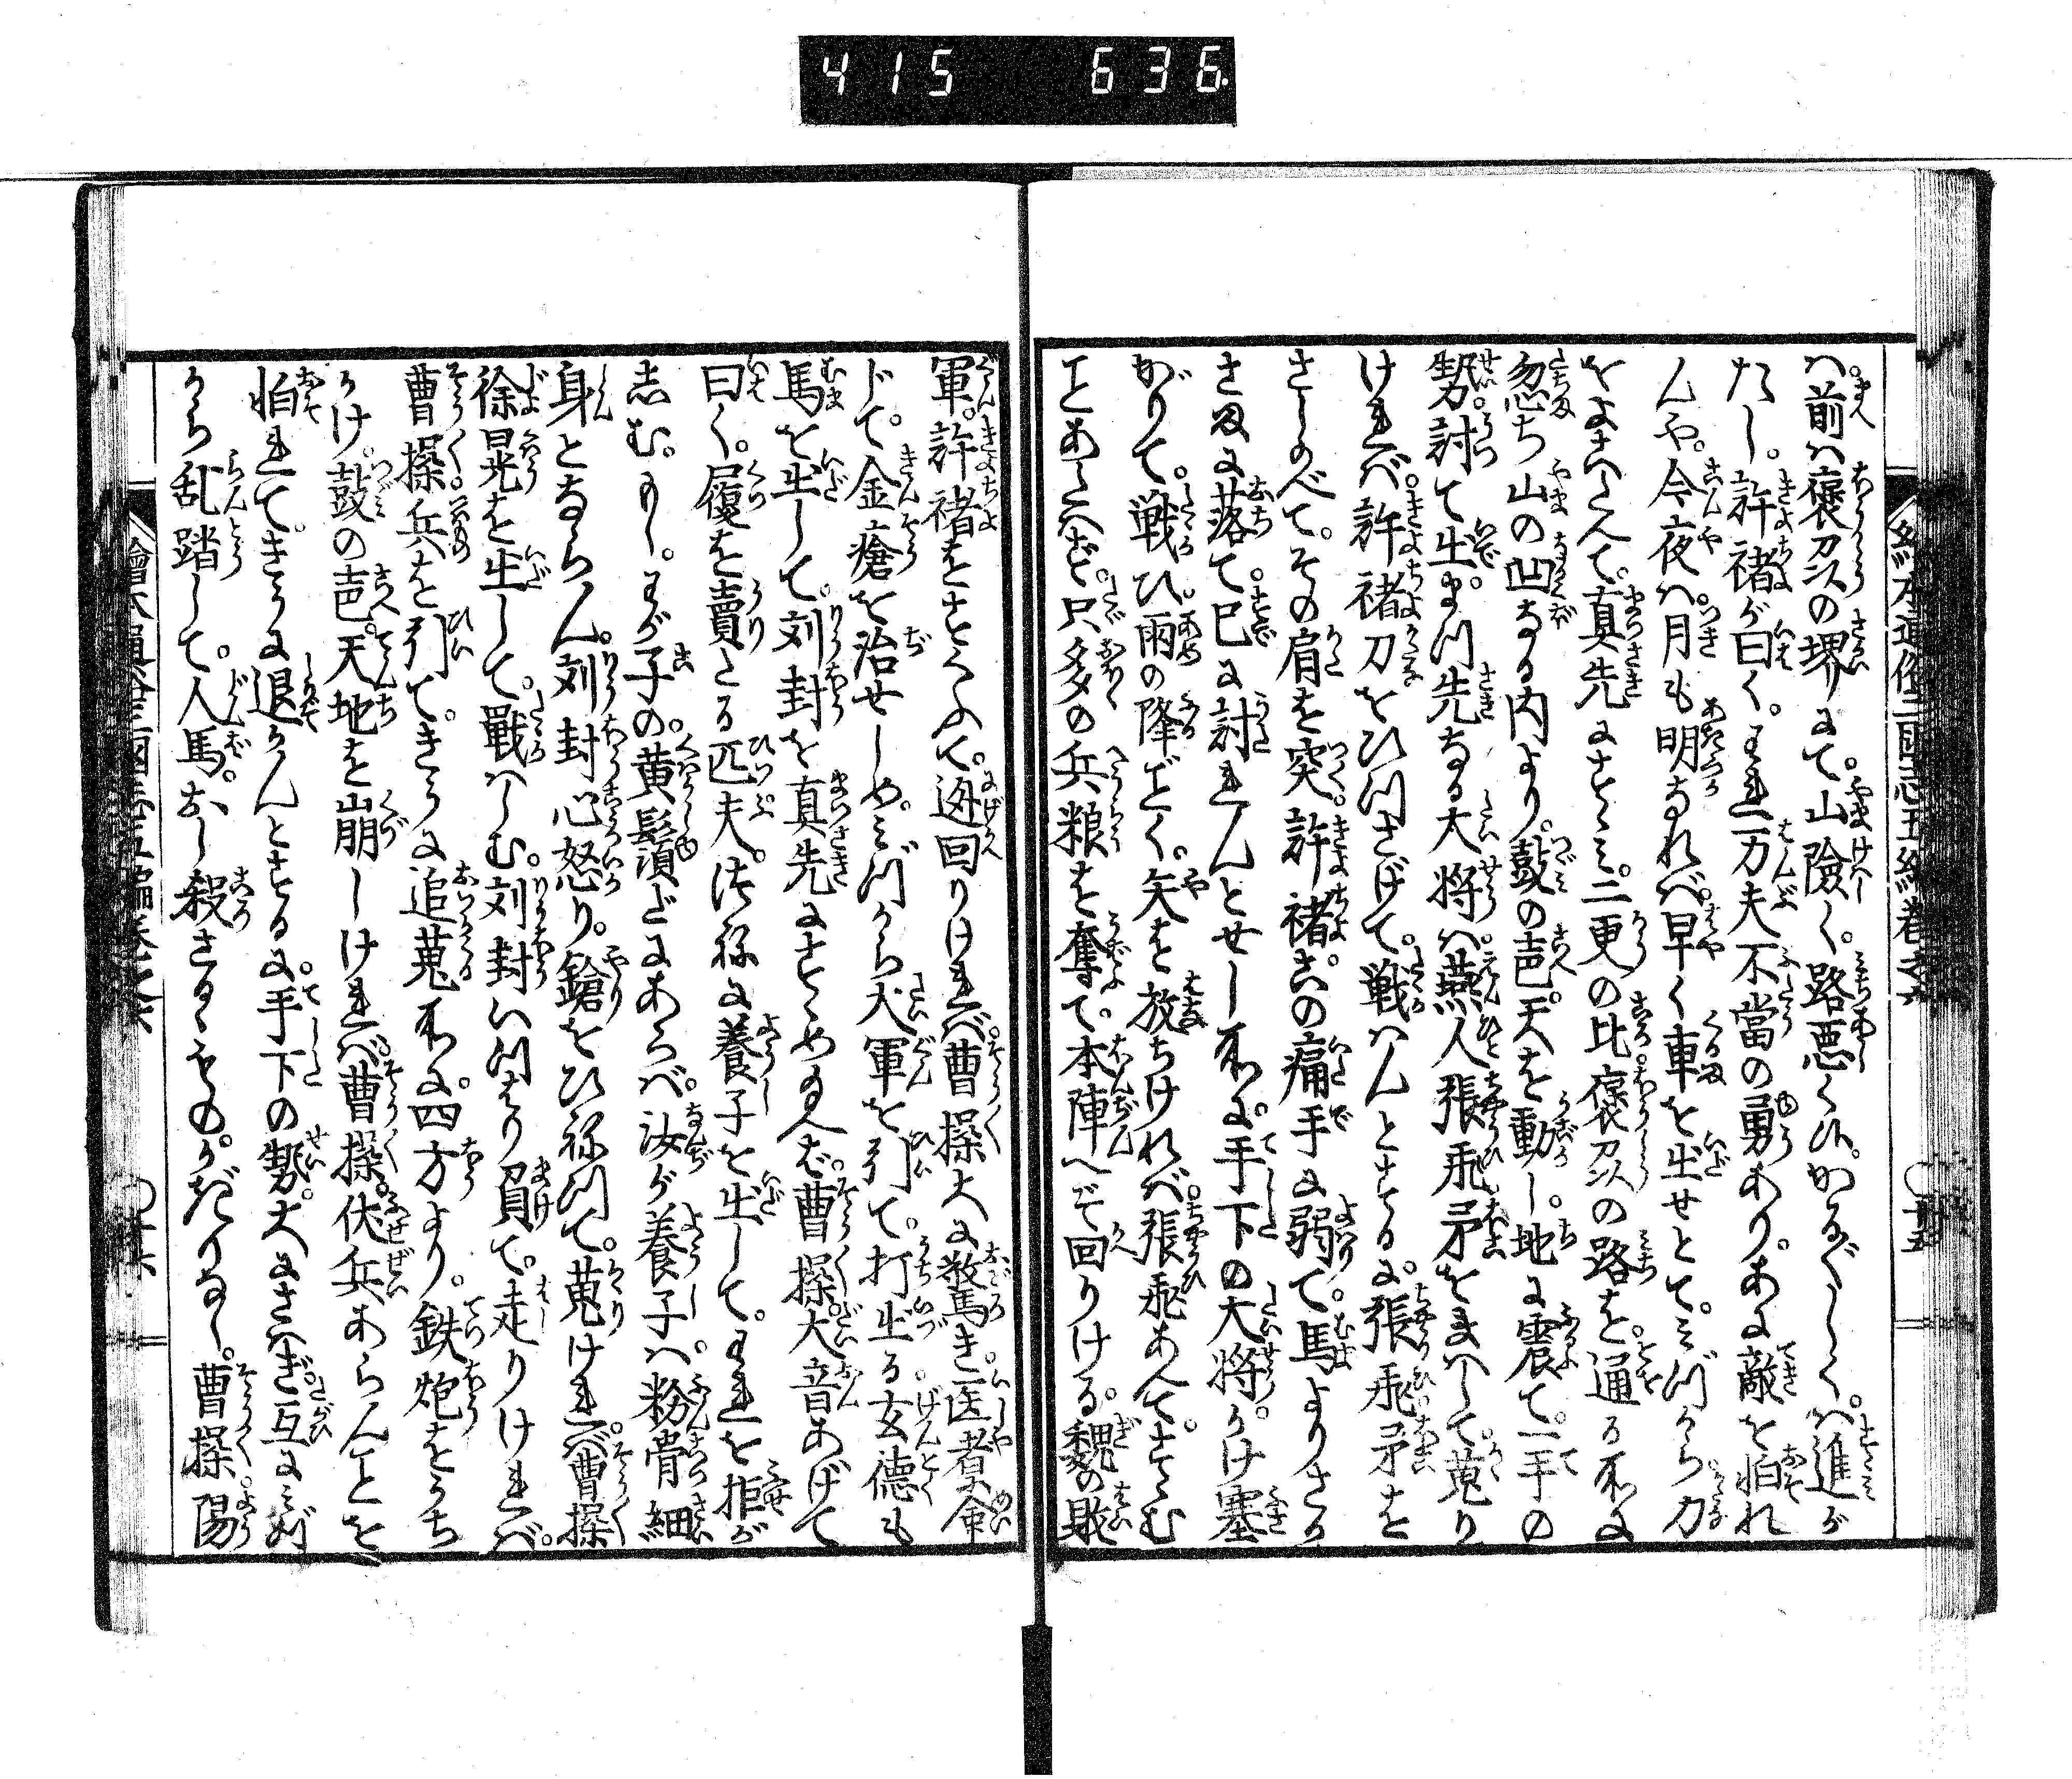 415 636
絵本通俗三國志五編巻之六
ハ前ハ褒刕の堺にて山險く路悪く候かる〴〵しくハ進が
たし許褚が曰くわれ万夫不當の勇ありあに敵を怕れ
んや今夜ハ月も明なれバ早く車を出せとてミづから力
をよこたへて真先にすゝミ二更の比褒刕の路を通る所に
忽ち山の凹なる内より鼓の声天を動し地に震て一手の
勢討て出まつ先なる大将ハ燕人張飛矛をまハして蒐り
けれバ許褚刀をひつさげて戦ハんとする に張飛矛を
さしのべてその肩を突許褚この痛手に弱て馬よりさか
さまに落て已に討れんとせし所に手下の大将かけ塞
がりて戦ひ雨の降ごとく矢を放ちけれバ張飛あへてすゝむ
ことあたハず只多の兵粮を奪て本陣へぞ回りける魏の敗
軍許褚をすくふて迯回りけれバ曹操大に驚き医者に命
じて金瘡を治せしめミづから大軍を引て打出る玄徳も
馬を出して刘封を真先にすゝめ給へば曹操大音あげて
曰く履を賣たる匹夫つねに養子を出してわれを拒が
しむもしわが子の黄鬚だにあらバ汝が養子ハ粉骨細
身とならん刘封心怒り鎗をひねつて蒐けれバ曹操
徐晃を出して戰ハしむ刘封いつはり負て走りけれバ
曹操兵を引てきうに追蒐る所に四方より鉄炮をうち
かけ鼓の声天地を崩しけれバ曹操伏兵あらんことを
怕れてきうに退かんとするに手下の勢大にさハぎ互にミづ
から乱踏して人馬おし殺さるゝものかぎりなし曹操陽
繪本通俗三國志五編巻之六